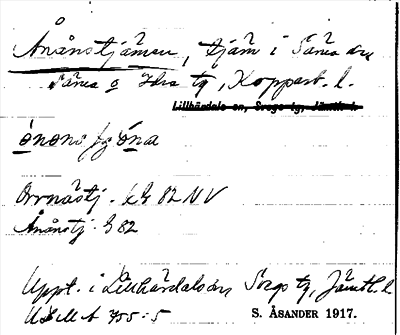 Ånånstjärnen, tjärn i Särna sn
Särna o Idre tg, Kopparb. l.
Lillhärdals sn, Svegs tg, Jämtl. l.
Orrnästj. GK 82 NV
Ånånstj. G 82
Uppt. i Lillhärdals sn Svegs tg, Jämtl. l
ULMA 455:5
S. ÅSANDER 1917.